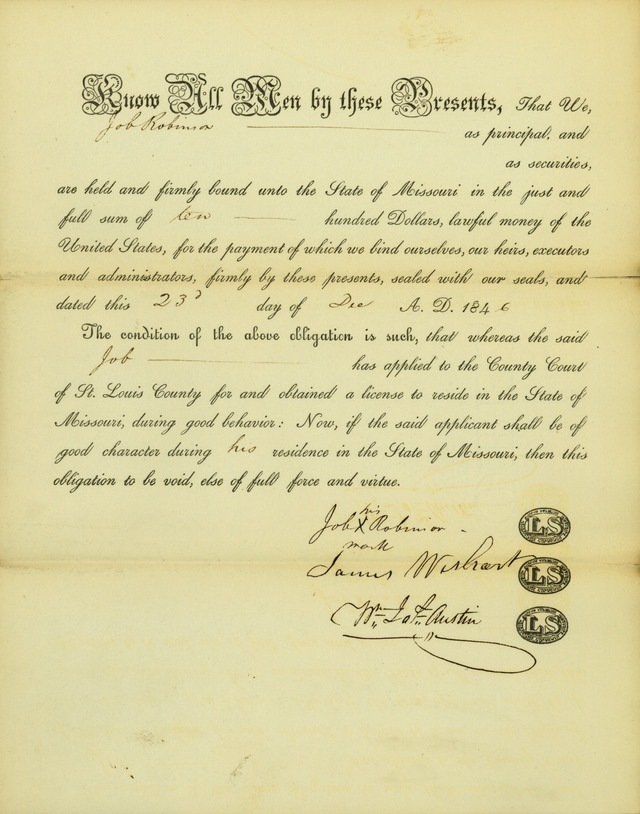 Know All Men by these Presents, That We,
Job Robinson as principal, and
as securities,
are held and firmly bound unto the State of Missouri in the just and
full sum of ten hundred Dollars, lawful money of the
United States, for the payment of which we bind ourselves, our heirs, executors
and administrators, firmly by these presents, sealed with our seals, and
dated this 23d day of Dec A. D. 1846
The condition of the above obligation is such, that whereas the said
Job has applied to the County Court
of St. Louis County for and obtained a license to reside in the State of
Missouri, during good behavior: Now, if the said applicant shall be of
good character during his residence in the State of Missouri, then this
obligation to be void, else of full force and virtue.
his
Job X Robinson LS
mark
James Wishart LS
Wm Jas Austin LS